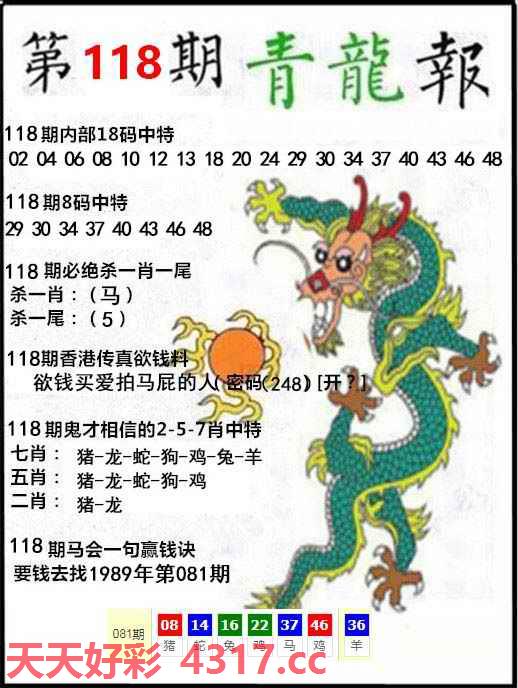 第118期青龍報
118期内部18码中特
02 04 06 08 10 12 13 18 20 24 29 30 34 37 40 43 46 48
118期8码中特
29 30 34 37 40 43 46 48
118期必绝杀一肖一尾
杀一肖：（马）
杀一尾：（5）
118期香港传真欲钱料
欲钱买爱拍马屁的人(密码(248)[开？]
118期鬼才相信的2-5-7肖中特
七肖：猪-龙-蛇-狗-鸡-兔-羊
五肖：猪-龙-蛇-狗-鸡
二肖：猪-龙
118期马会一句赢钱诀
要钱去找1989年第081期
081期 08 14 16 22 37 46 36
猪 蛇 兔 鸡 马 鸡 羊
天天好彩 4317.cc